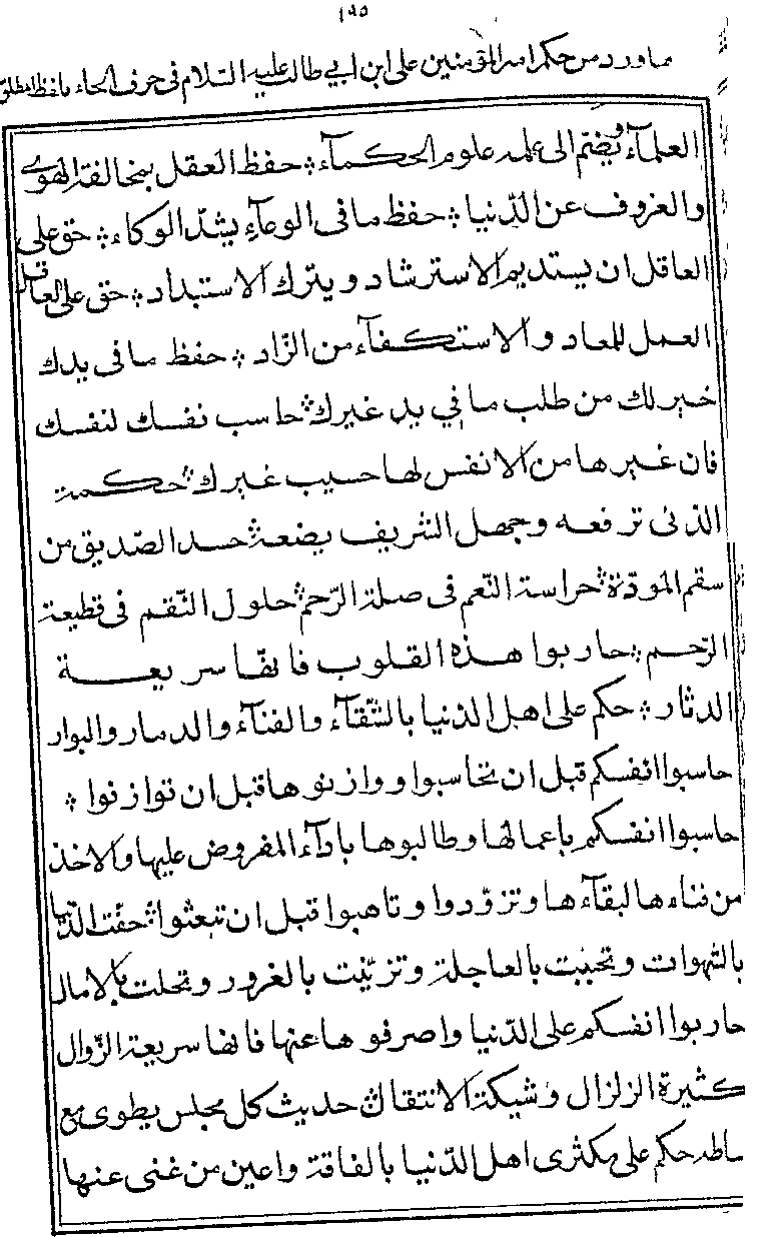 ١٩٥
مما ورد من حكم امير المؤمنين على ابن ابي طالب عليه السّلام فى حرف الحاء بلفظ مطلق
العلمآء ويضم الى علمه علوم الحكمآء ؞ حفظ العقل بمخالفة الهوى
والعزوف عن الدّنيا ؞ حفظ ما فى الوعآء بشدّ الوكاء ؞ حق على
العاقل ان يستديم الاسترشاد ويترك الاستبداد ؞ حق على العاقل
العمل للمعاد والاستكفآء من الزّاد ؞ حفظ ما فى يدك
خير لك من طلب ما في يد غيرك ؞ حاسب نفسك لنفسك
فان غيرها من الانفس لها حسيب غيرك ؞ حكمة
الدّنى ترفعه وجهل الشريف يضعه ؞ حسد الصّديق من
سقم المودّة ؞ حراسة النّعم فى صلة الرّحم ؞ حلول النّقم فى قطيعة
الرّحم ؞ حاربوا هذه القلوب فانّها سريعة
الدثار ؞ حكم على اهل الدّنيا بالشّقآء والفنآء والدمار والبوار
حاسبوا انفسكم قبل ان تحاسبوا ووازنوها قبل ان توازنوا ؞
حاسبوا انفسكم باعمالها وطالبوها بادآء المفروض عليها والاخذ
من فناءها لبقآءها وتزوّدوا وتاهبوا قبل ان تبعثوا ؞ حفّت الدّنيا
بالشهوات وتحببت بالعاجلة وتزيّنت بالغرور وتحلت بالامال
حاربوا انفسكم على الدّنيا واصرفوها عنها فانها سريعة الزّوال
كثيرة الزلزال وشيكة الانتقال ؞ حديث كل مجلس يطوى مع
بساطه حكم على مكثرى اهل الدّنيا بالفاقة واعين من غنى عنها